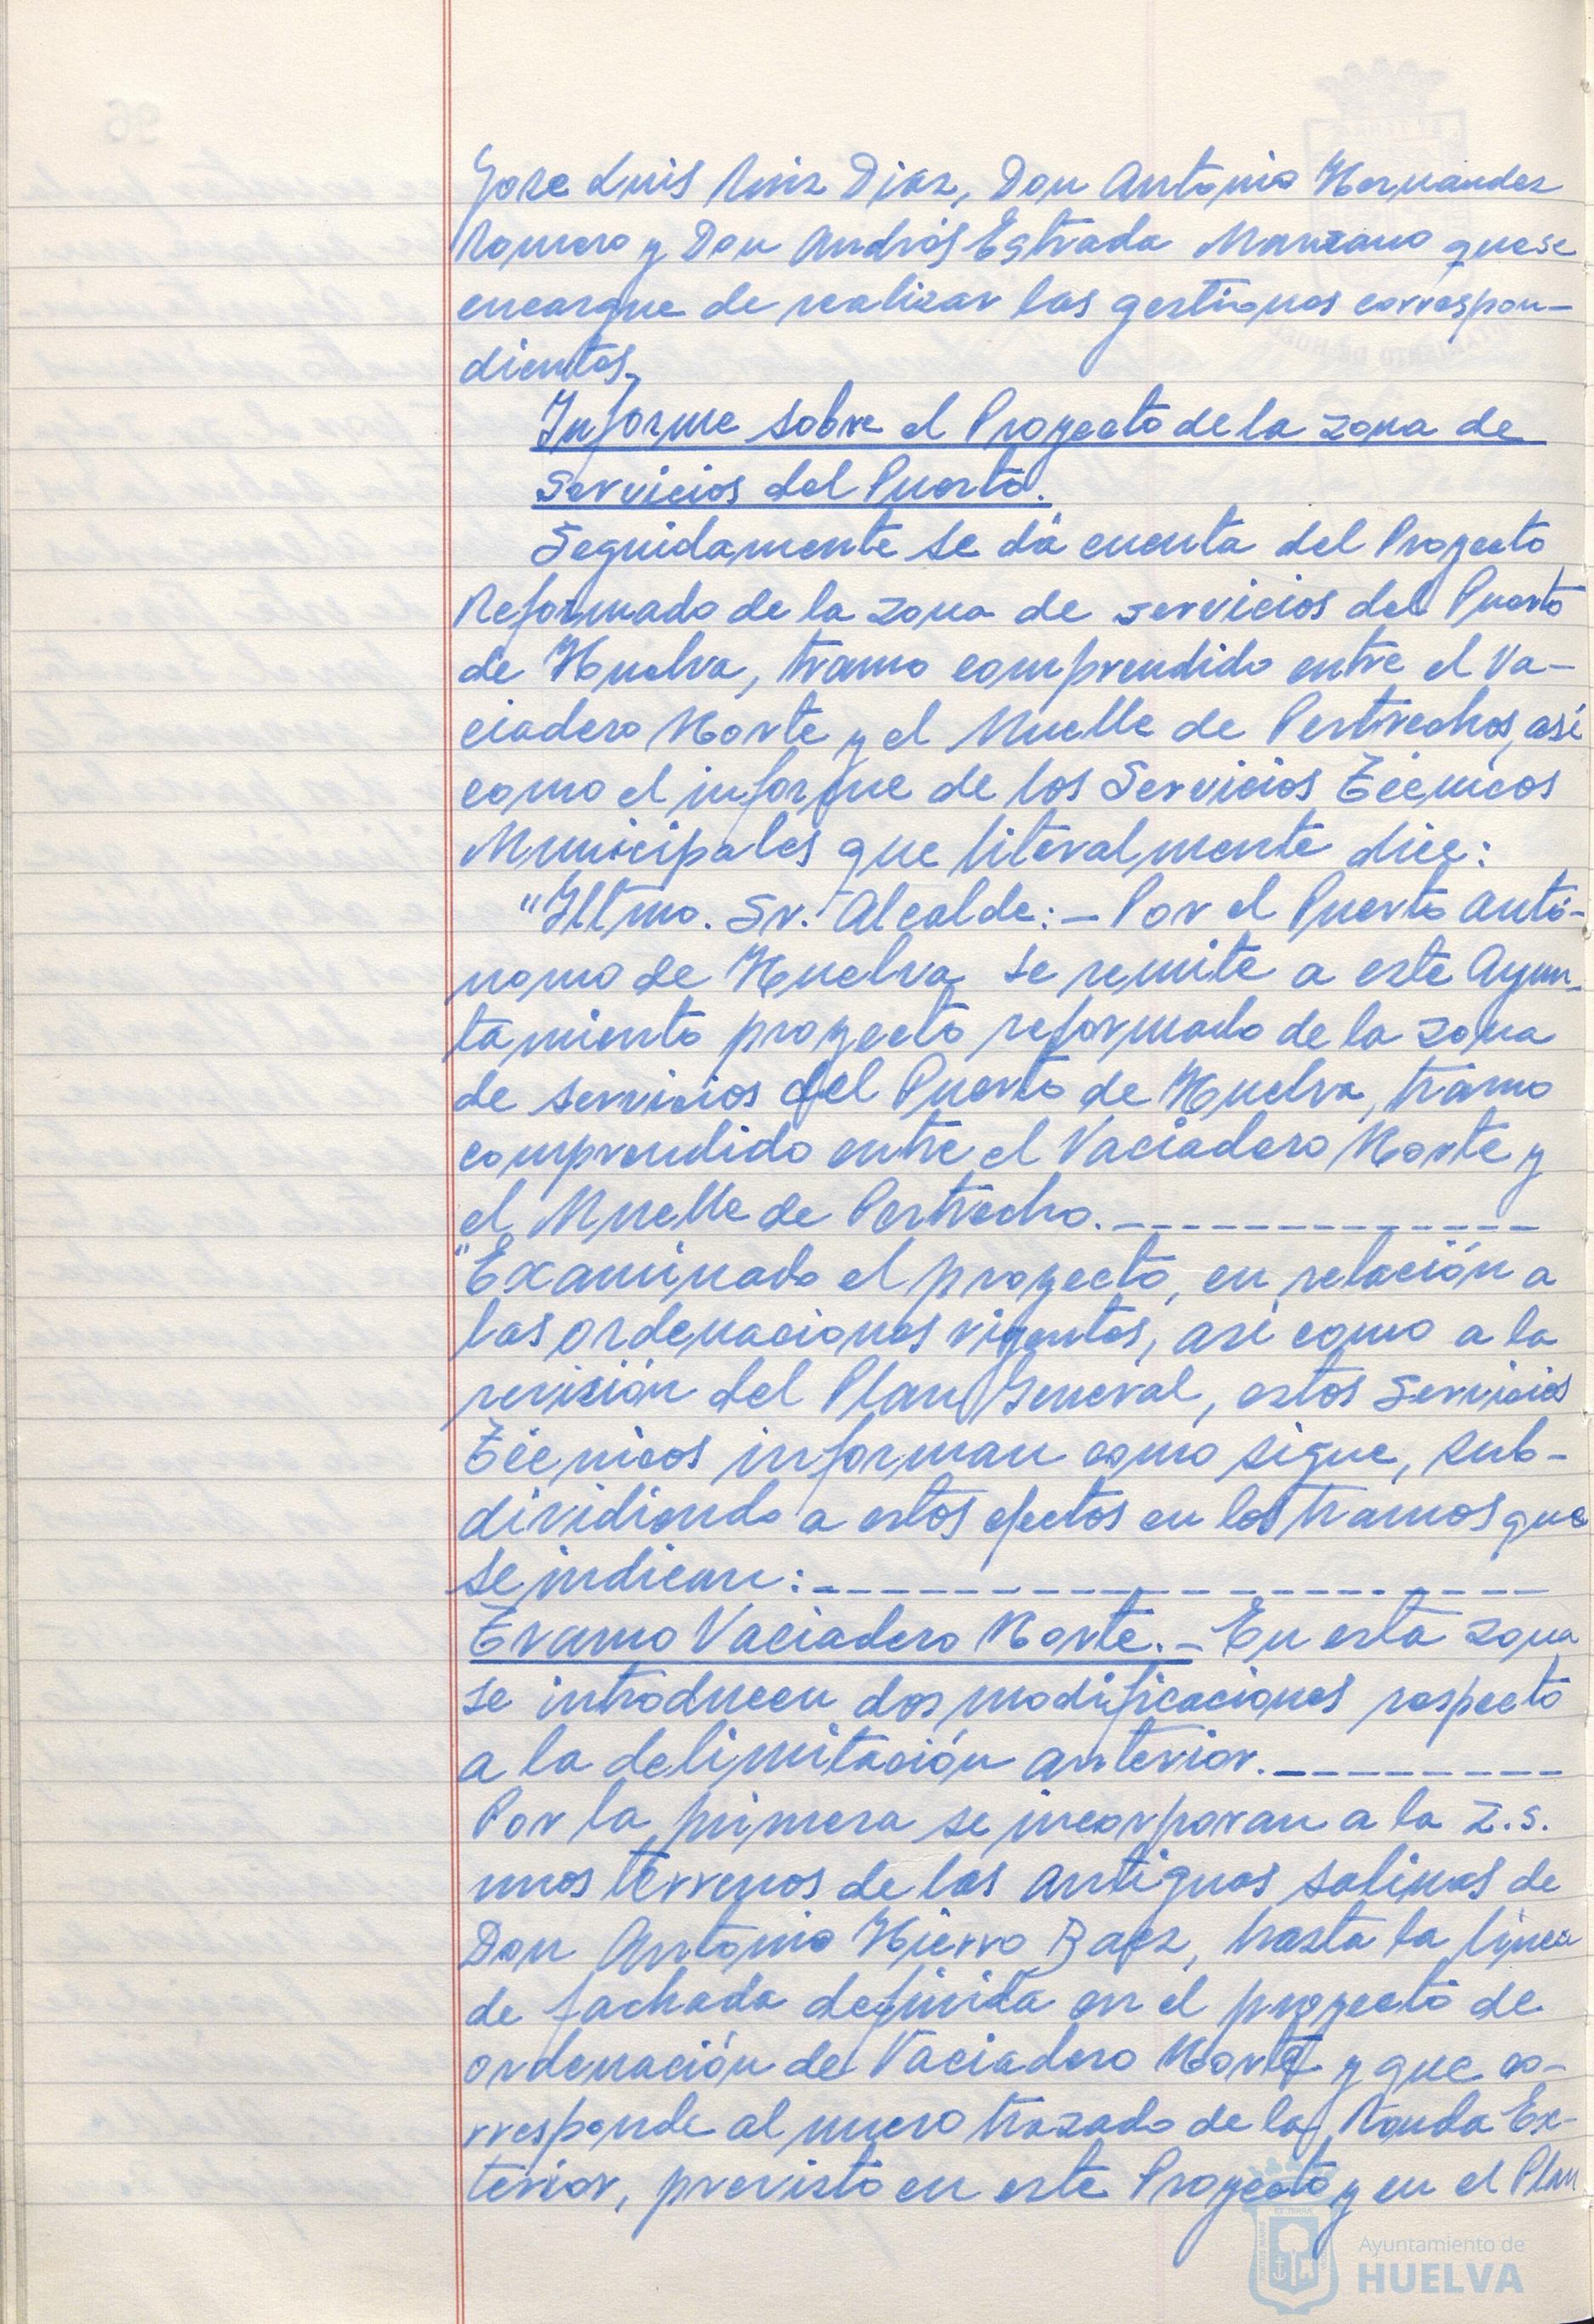 Jose Luis Ruiz Diaz, Don Antonio Hernandez
Romero y Don Andrés Estrada Manzano que se
encargue de realizar las gestiones correspon-
dientes.
Informe sobre el Proyecto de la zona de
Servicios del Puerto.
Seguidamente se dá cuenta del Proyecto
Reformado de la zona de servicios del Puerto
de Huelva, tramo comprendido entre el Va-
ciadero Norte y el Muelle de Pertrechos, así
como el informe de los Servicios Técnicos
Municipales que literalmente dice:
"Iltmo. Sr. Alcalde:- Por el Puerto autó-
nomo de Huelva se remite a este Ayun-
tamiento proyecto reformado de la zona
de servicios del Puerto de Huelva, tramo
comprendido entre el Vaciadero Norte y
el Muelle de Pertrecho.
"Examinado el proyecto, en relación a
las ordenaciones vigentes, así como a la
revisión del Plan General, estos Servicios
Técnicos informan como sigue, sub-
dividiendo a estos efectos en los tramos que
se indican:
Tramo Vaciadero Norte.- En esta zona
se introducen dos modificaciones respecto
a la delimitación anterior.
Por la primera se incorporan a la Z.S.
unos terrenos de las antiguas salinas de
Don Antonio Hierro Baez, hasta la línea
de fachada definida en el proyecto de
ordenación de Vaciadero Norte y que co-
rresponde al nuevo trazado de la Ronda Ex-
terior, previsto en este Proyecto y en el Plan
Ayuntamiento de
HUELVA